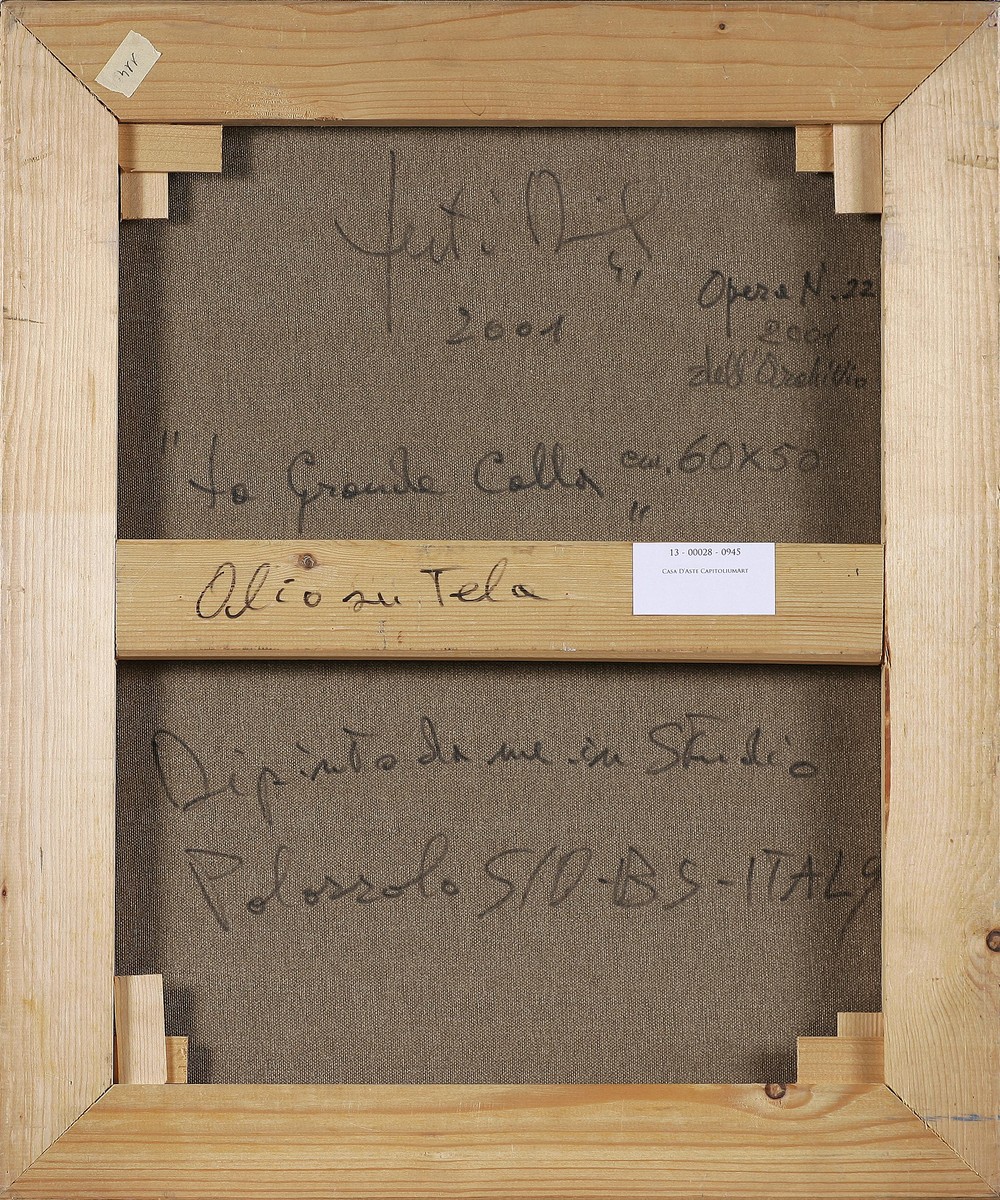 2001
Opera N. 22
2001
dell'Archivio
"La Grande Calla"
cm. 60x50
Olio su Tela
13 - 00028 - 0945
Casa D'Aste CapitoliumArt
Dipinto da me in Studio
Polozzolo S/O - BS - ITALY